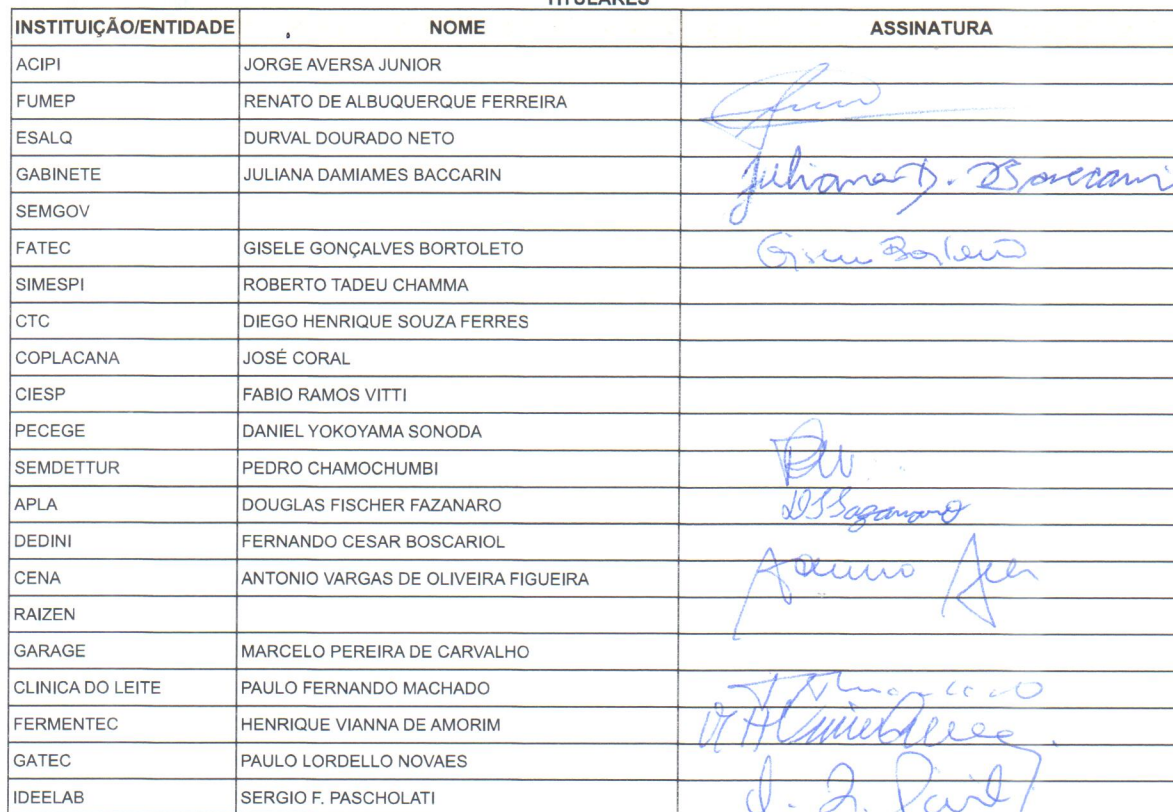 TITULARES
INSTITUIÇÃO/ENTIDADE NOME ASSINATURA
ACIPI JORGE AVERSA JUNIOR
FUMEP RENATO DE ALBUQUERQUE FERREIRA
ESALQ DURVAL DOURADO NETO
GABINETE JULIANA DAMIAMES BACCARIN Juliana D. Baccarin
SEMGOV
FATEC GISELE GONÇALVES BORTOLETO
SIMESPI ROBERTO TADEU CHAMMA
CTC DIEGO HENRIQUE SOUZA FERRES
COPLACANA JOSÉ CORAL
CIESP FABIO RAMOS VITTI
PECEGE DANIEL YOKOYAMA SONODA
SEMDETTUR PEDRO CHAMOCHUMBI
APLA DOUGLAS FISCHER FAZANARO
DEDINI FERNANDO CESAR BOSCARIOL
CENA ANTONIO VARGAS DE OLIVEIRA FIGUEIRA
RAIZEN
GARAGE MARCELO PEREIRA DE CARVALHO
CLINICA DO LEITE PAULO FERNANDO MACHADO
FERMENTEC HENRIQUE VIANNA DE AMORIM
GATEC PAULO LORDELLO NOVAES
IDEELAB SERGIO F. PASCHOLATI